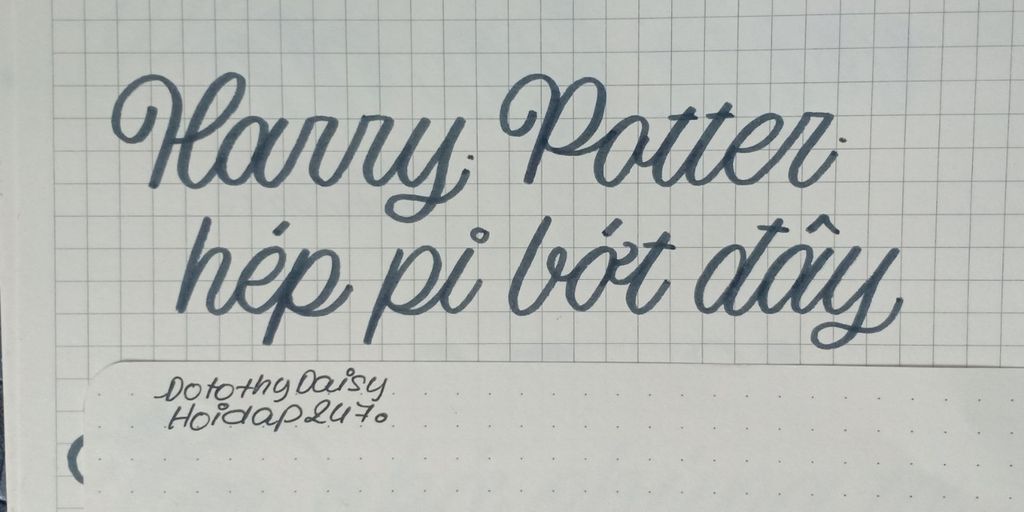 Harry Potter
hép pi bớt đây
DorothyDaisy
Hoidap247.